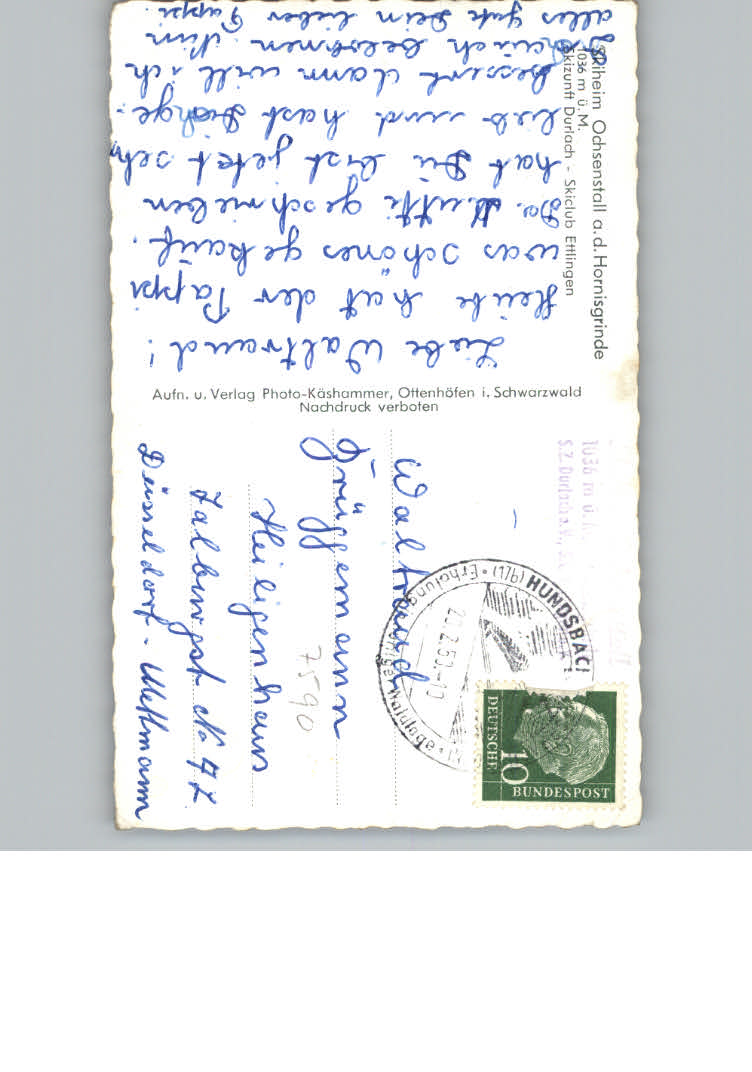 Skiheim Ochsenstall a.d. Hornisgrinde
1036 m ü. M.
Skizunft Durlach - Skiclub Ettlingen
Liebe Waltraud!
Heute hat der Pappi
was schönes gekauf.
Da Mutti geschrieben
hat Du bist jetzt seh
lieb und hast Dich ge-
bessert dann will ich
auch belohnen. Nun
alles gute Dein lieber Pappi.
Aufn. u. Verlag Photo-Käshammer, Ottenhöfen i. Schwarzwald
Nachdruck verboten
1036 m ü.
S.Z. Durlach e.V.
(17b) HUNDSBACH
Erholung
ruhiger Waldlage
DEUTSCHE
BUNDESPOST
10
Waltraud
Brüggemann
Heiligenhaus
Talburgst No 42
Düsseldorf - Mettmann
7590